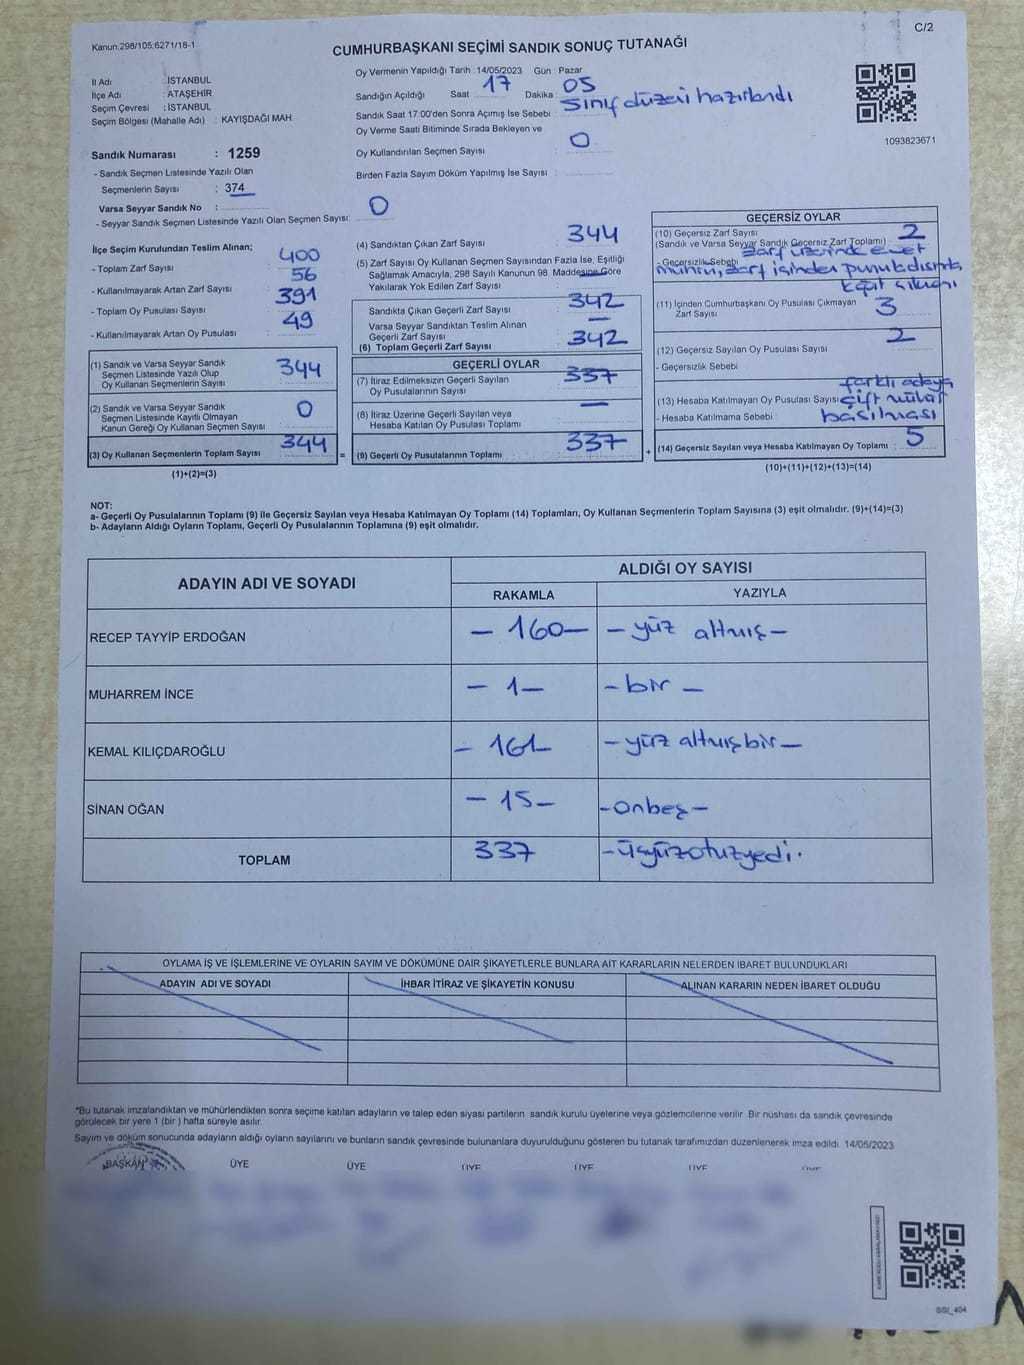 C/2
Kanun:298/105;6271/18-1
CUMHURBAŞKANI SEÇİMİ SANDIK SONUÇ TUTANAĞI
İl Adı : İSTANBUL
İlçe Adı : ATAŞEHİR
Seçim Çevresi : İSTANBUL
Seçim Bölgesi (Mahalle Adı) : KAYIŞDAĞI MAH.
Sandık Numarası : 1259
- Sandık Seçmen Listesinde Yazılı Olan
Seçmenlerin Sayısı : 374
Varsa Seyyar Sandık No :
- Seyyar Sandık Seçmen Listesinde Yazılı Olan Seçmen Sayısı: 0
Oy Vermenin Yapıldığı Tarih : 14/05/2023 Gün : Pazar
Sandığın Açıldığı Saat 17 Dakika : 05
Sandık Saat 17:00'den Sonra Açımış İse Sebebi : Sınıf düzeni hazırlandı
Oy Verme Saati Bitiminde Sırada Bekleyen ve
Oy Kullandırılan Seçmen Sayısı : 0
Birden Fazla Sayım Döküm Yapılmış İse Sayısı :
1093823671
İlçe Seçim Kurulundan Teslim Alınan;
- Toplam Zarf Sayısı : 400
- Kullanılmayarak Artan Zarf Sayısı : 56
- Toplam Oy Pusulası Sayısı : 391
- Kullanılmayarak Artan Oy Pusulası : 49
(1) Sandık ve Varsa Seyyar Sandık
Seçmen Listesinde Yazılı Olup
Oy Kullanan Seçmenlerin Sayısı : 344
(2) Sandık ve Varsa Seyyar Sandık
Seçmen Listesinde Kayıtlı Olmayan
Kanun Gereği Oy Kullanan Seçmen Sayısı : 0
(3) Oy Kullanan Seçmenlerin Toplam Sayısı : 344
(1)+(2)=(3)
(4) Sandıktan Çıkan Zarf Sayısı : 344
(5) Zarf Sayısı Oy Kullanan Seçmen Sayısından Fazla İse, Eşitliği
Sağlamak Amacıyla; 298 Sayılı Kanunun 98. Maddesine Göre
Yakılarak Yok Edilen Zarf Sayısı : —
Sandıkta Çıkan Geçerli Zarf Sayısı : 342
Varsa Seyyar Sandıktan Teslim Alınan
Geçerli Zarf Sayısı : —
(6) Toplam Geçerli Zarf Sayısı : 342
GEÇERLİ OYLAR
(7) İtiraz Edilmeksizin Geçerli Sayılan
Oy Pusulalarının Sayısı : 337
(8) İtiraz Üzerine Geçerli Sayılan veya
Hesaba Katılan Oy Pusulası Toplamı : —
= (9) Geçerli Oy Pusulalarının Toplamı : 337
GEÇERSİZ OYLAR
(10) Geçersiz Zarf Sayısı
(Sandık ve Varsa Seyyar Sandık Geçersiz Zarf Toplamı) : 2
- Geçersizlik Sebebi : zarf üzerinde evet
mührü, zarf içinden pusula dışında
kağıt çıkması
(11) İçinden Cumhurbaşkanı Oy Pusulası Çıkmayan
Zarf Sayısı : 3
(12) Geçersiz Sayılan Oy Pusulası Sayısı : 2
- Geçersizlik Sebebi
farklı adaya
(13) Hesaba Katılmayan Oy Pusulası Sayısı : çift mühür
- Hesaba Katılmama Sebebi : basılması
+ (14) Geçersiz Sayılan veya Hesaba Katılmayan Oy Toplamı : 5
(10)+(11)+(12)+(13)=(14)
NOT:
a- Geçerli Oy Pusulalarının Toplamı (9) ile Geçersiz Sayılan veya Hesaba Katılmayan Oy Toplamı (14) Toplamları, Oy Kullanan Seçmenlerin Toplam Sayısına (3) eşit olmalıdır. (9)+(14)=(3)
b- Adayların Aldığı Oyların Toplamı, Geçerli Oy Pusulalarının Toplamına (9) eşit olmalıdır.
ADAYIN ADI VE SOYADI
ALDIĞI OY SAYISI
RAKAMLA YAZIYLA
RECEP TAYYİP ERDOĞAN — 160 — — yüz altmış —
MUHARREM İNCE — 1 — — bir —
KEMAL KILIÇDAROĞLU — 161 — — yüz altmış bir —
SİNAN OĞAN — 15 — — onbeş —
TOPLAM 337 — üçyüzotuzyedi.
OYLAMA İŞ VE İŞLEMLERİNE VE OYLARIN SAYIM VE DÖKÜMÜNE DAİR ŞİKAYETLERLE BUNLARA AİT KARARLARIN NELERDEN İBARET BULUNDUKLARI
ADAYIN ADI VE SOYADI İHBAR İTİRAZ VE ŞİKAYETİN KONUSU ALINAN KARARIN NEDEN İBARET OLDUĞU
*Bu tutanak imzalandıktan ve mühürlendikten sonra seçime katılan adayların ve talep eden siyasi partilerin sandık kurulu üyelerine veya gözlemcilerine verilir. Bir nüshası da sandık çevresinde
görülecek bir yere 1 (bir ) hafta süreyle asılır.
Sayım ve döküm sonucunda adayların aldığı oyların sayılarını ve bunların sandık çevresinde bulunanlara duyurulduğunu gösteren bu tutanak tarafımızdan düzenlenerek imza edildi. 14/05/2023
BAŞKAN ÜYE ÜYE ÜYE ÜYE ÜYE
BSI_404